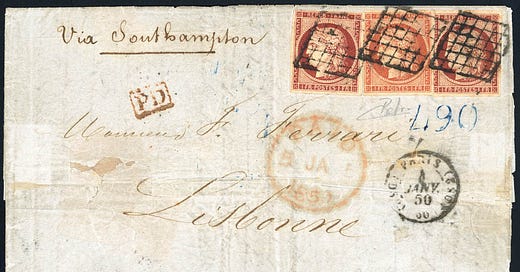 Via Southampton
REPUB. FRANC.
REPUB. FRANC.
REPUB. FRANC.
1 FR · POSTES · 1 FR
1 FR · POSTES · 1 FR
1 FR · POSTES · 1 FR
P.D.
490
Monsieur F. Ferrari
JA
PARIS
JANV.
50
(60)
Lisbonne